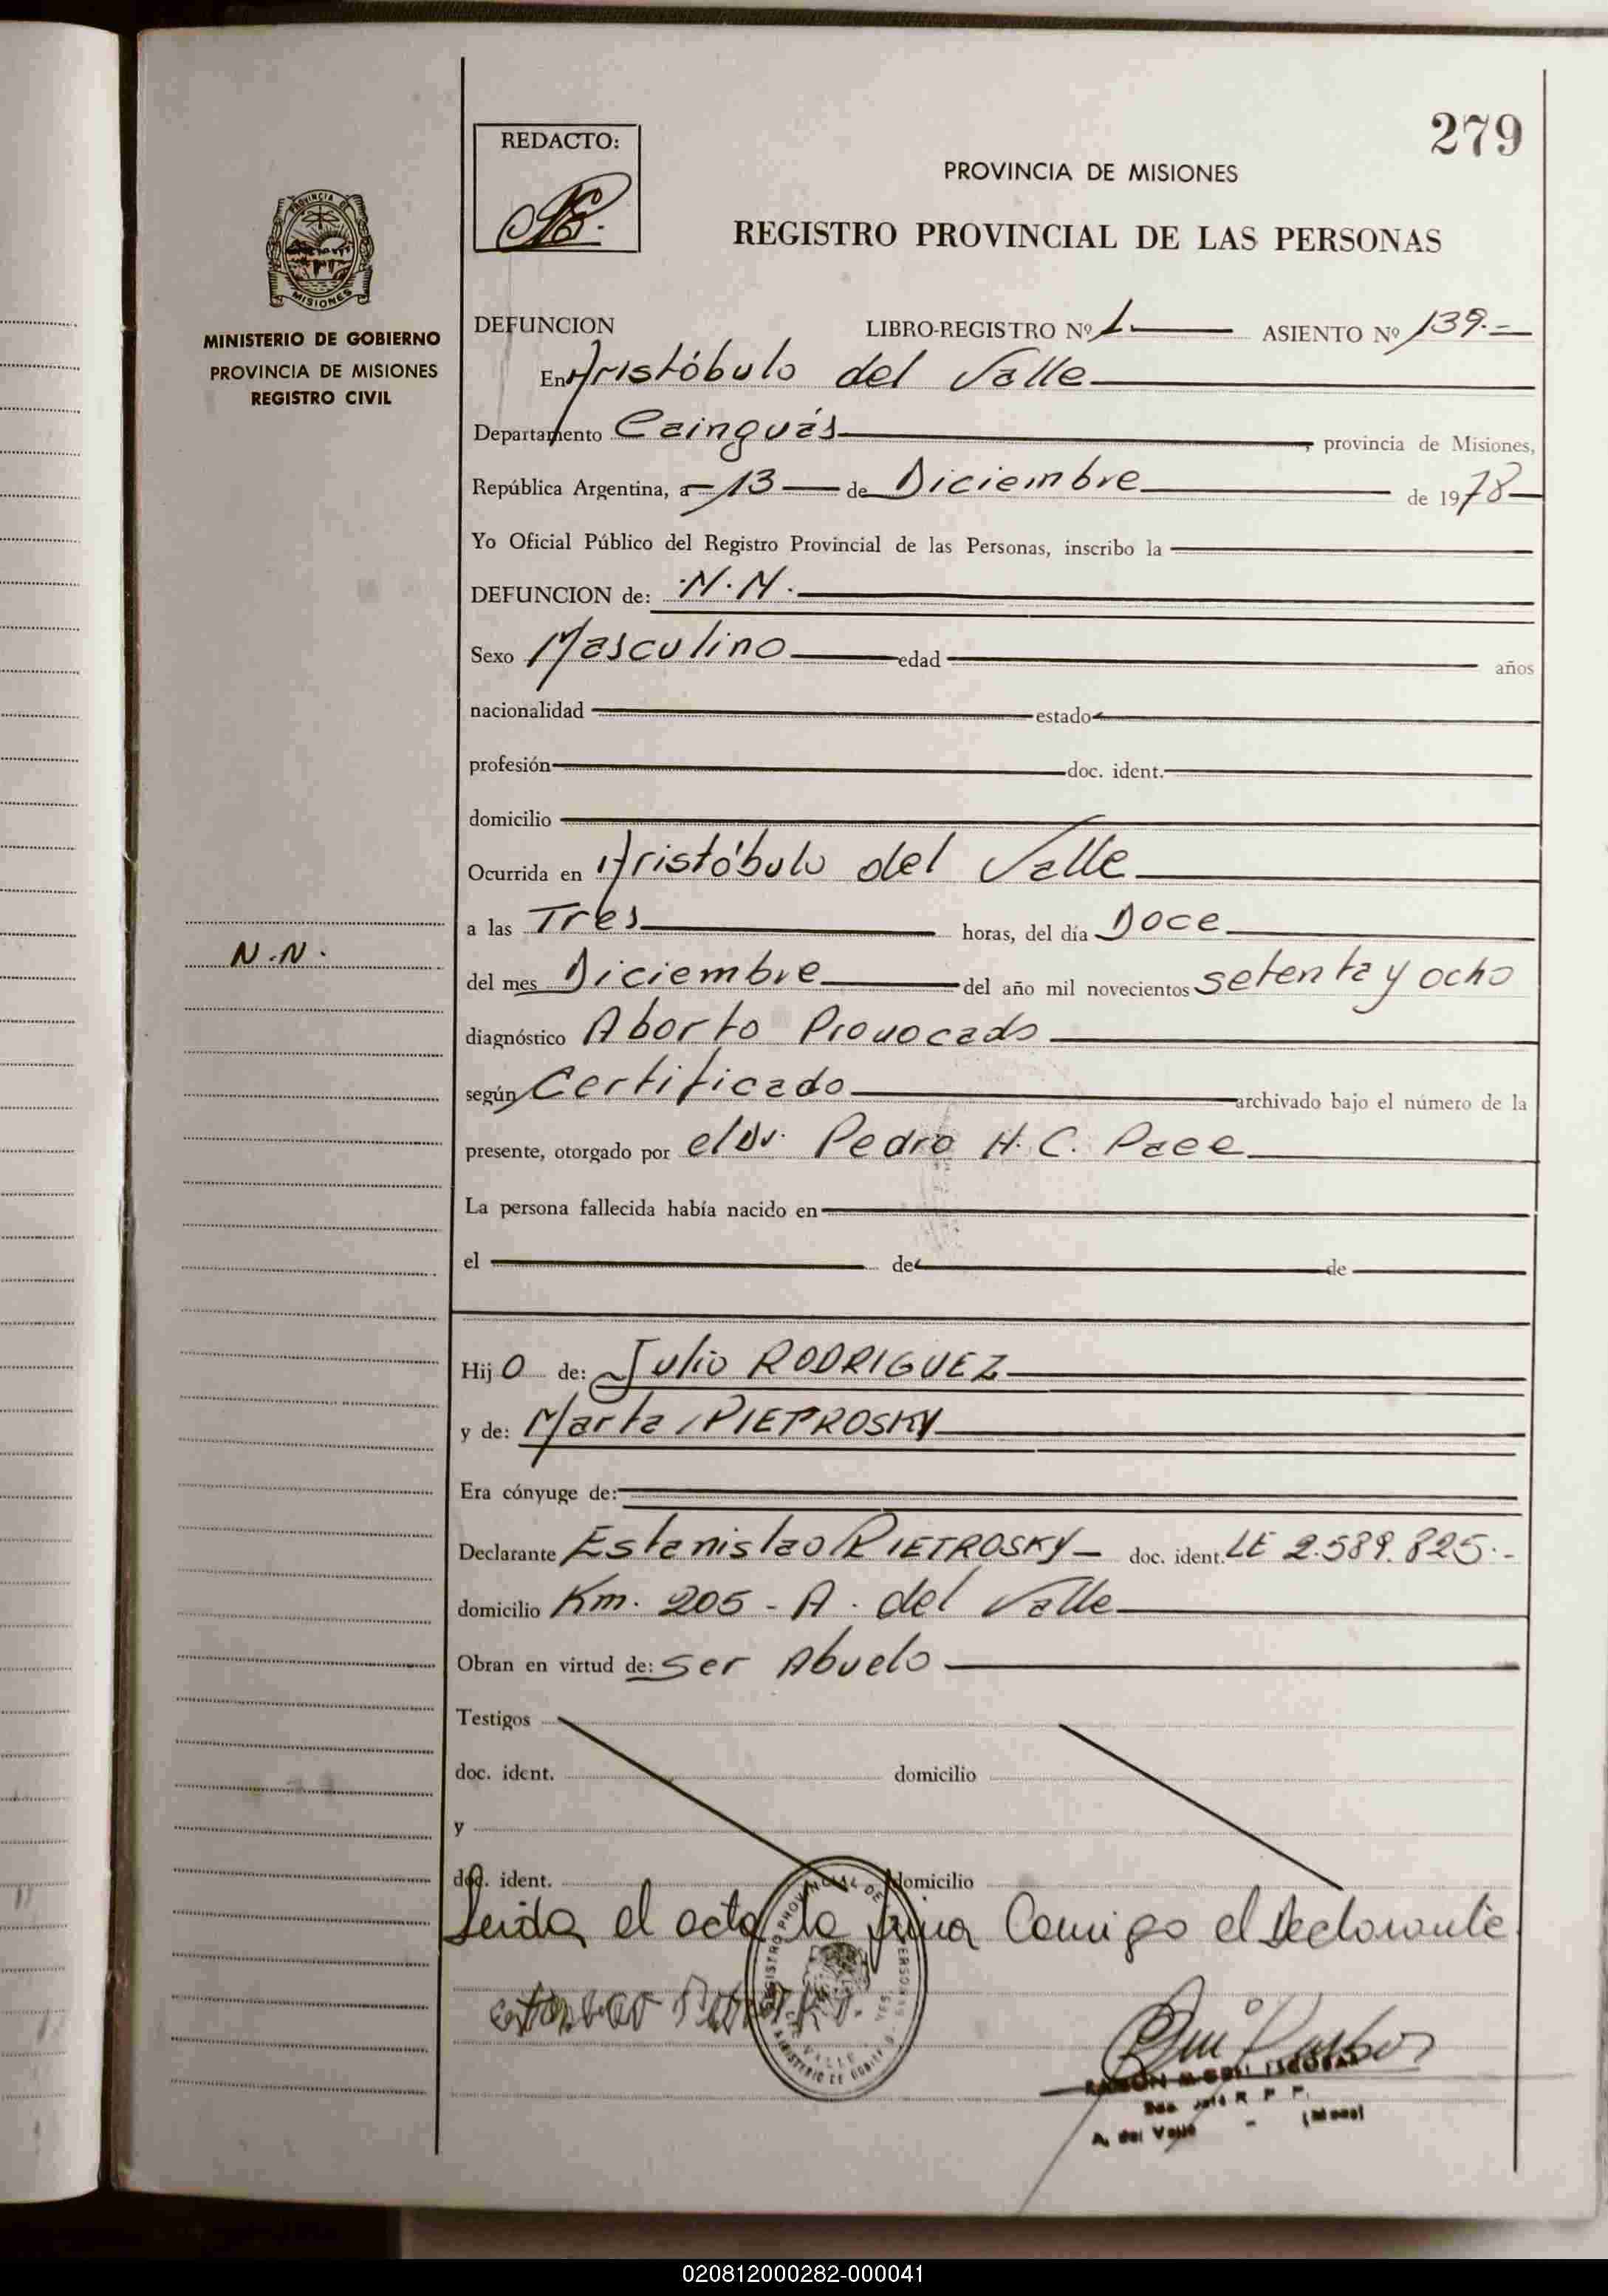 279
REDACTO:
PROVINCIA DE MISIONES
REGISTRO PROVINCIAL DE LAS PERSONAS
PROVINCIA DE
MISIONES
MINISTERIO DE GOBIERNO
PROVINCIA DE MISIONES
REGISTRO CIVIL
DEFUNCION LIBRO-REGISTRO Nº 1 ASIENTO Nº 139.-
En Aristóbulo del Valle
Departamento Cainguás, provincia de Misiones,
República Argentina, a 13 de Diciembre de 1978
Yo Oficial Público del Registro Provincial de las Personas, inscribo la
DEFUNCION de: N.N.
Sexo Masculino edad años
nacionalidad estado
profesión doc. ident.
domicilio
Ocurrida en Aristóbulo del Valle
a las Tres horas, del día Doce
N.N.
del mes Diciembre del año mil novecientos setenta y ocho
diagnóstico Aborto Provocado
según Certificado archivado bajo el número de la
presente, otorgado por el Dr. Pedro H. C. Paee
La persona fallecida había nacido en
el de de
Hijo de: Julio RODRIGUEZ
y de: Marta PIETROSKY
Era cónyuge de:
Declarante Estanislao PIETROSKY doc. ident. LE 2.589.825.-
domicilio Km. 205 - A. del Valle
Obran en virtud de: ser Abuelo
Testigos
doc. ident. domicilio
y
doc. ident. domicilio
Leida el acta la firma Conmigo el Declarante
REGISTRO PROVINCIAL DE PERSONAS
VALLE
MINISTERIO DE GOBIERNO
RAMON ESCOBAR
R P P.
A. del Valle
020812000282-000041